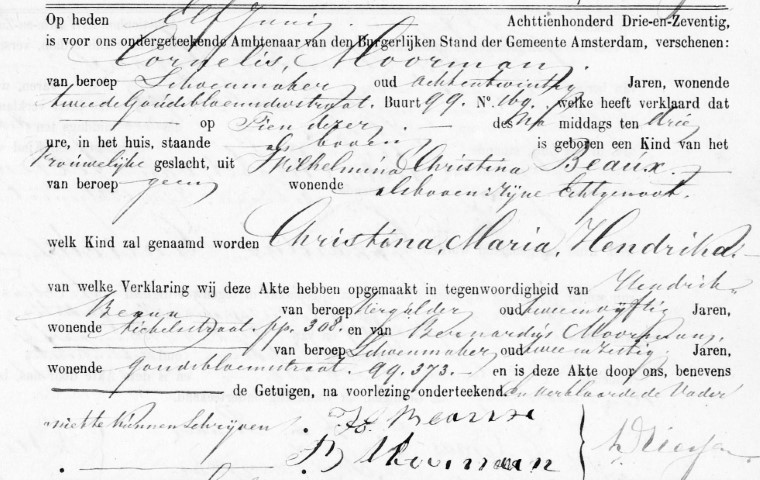 Op heden Elf Juni Achttienhonderd Drie-en-Zeventig,
is voor ons ondergeteekende Ambtenaar van den Burgerlijken Stand der Gemeente Amsterdam, verschenen:
Cornelis, Moorman.
van beroep Schoenmaker oud achtentwintig Jaren, wonende
tweede Goudsbloemdwstraat. Buurt 99. No. 169. welke heeft verklaard dat
op Tien dezer. des Na middags ten drie
ure, in het huis, staande als boven is geboren een Kind van het
Vrouwelijke geslacht, uit Wilhelmina Christina Beaux.
van beroep geen wonende alsboven: zijne Echtgenoot.
welk Kind zal genaamd worden Christina, Maria, Hendrika.
van welke Verklaring wij deze Akte hebben opgemaakt in tegenwoordigheid van Hendrik
Beaux van beroep oud tweeenvijftig Jaren,
wonende pp. 308. en van Bernardus Moorman,
van beroep Schoenmaker oud tweeenzestig. Jaren,
wonende Goudsbloemstraat. 99. 373. en is deze Akte door ons, benevens
de Getuigen, na voorlezing onderteekend. en verklaarde de Vader
niet te kunnen Schrijven. H. Beaux
B Moorman